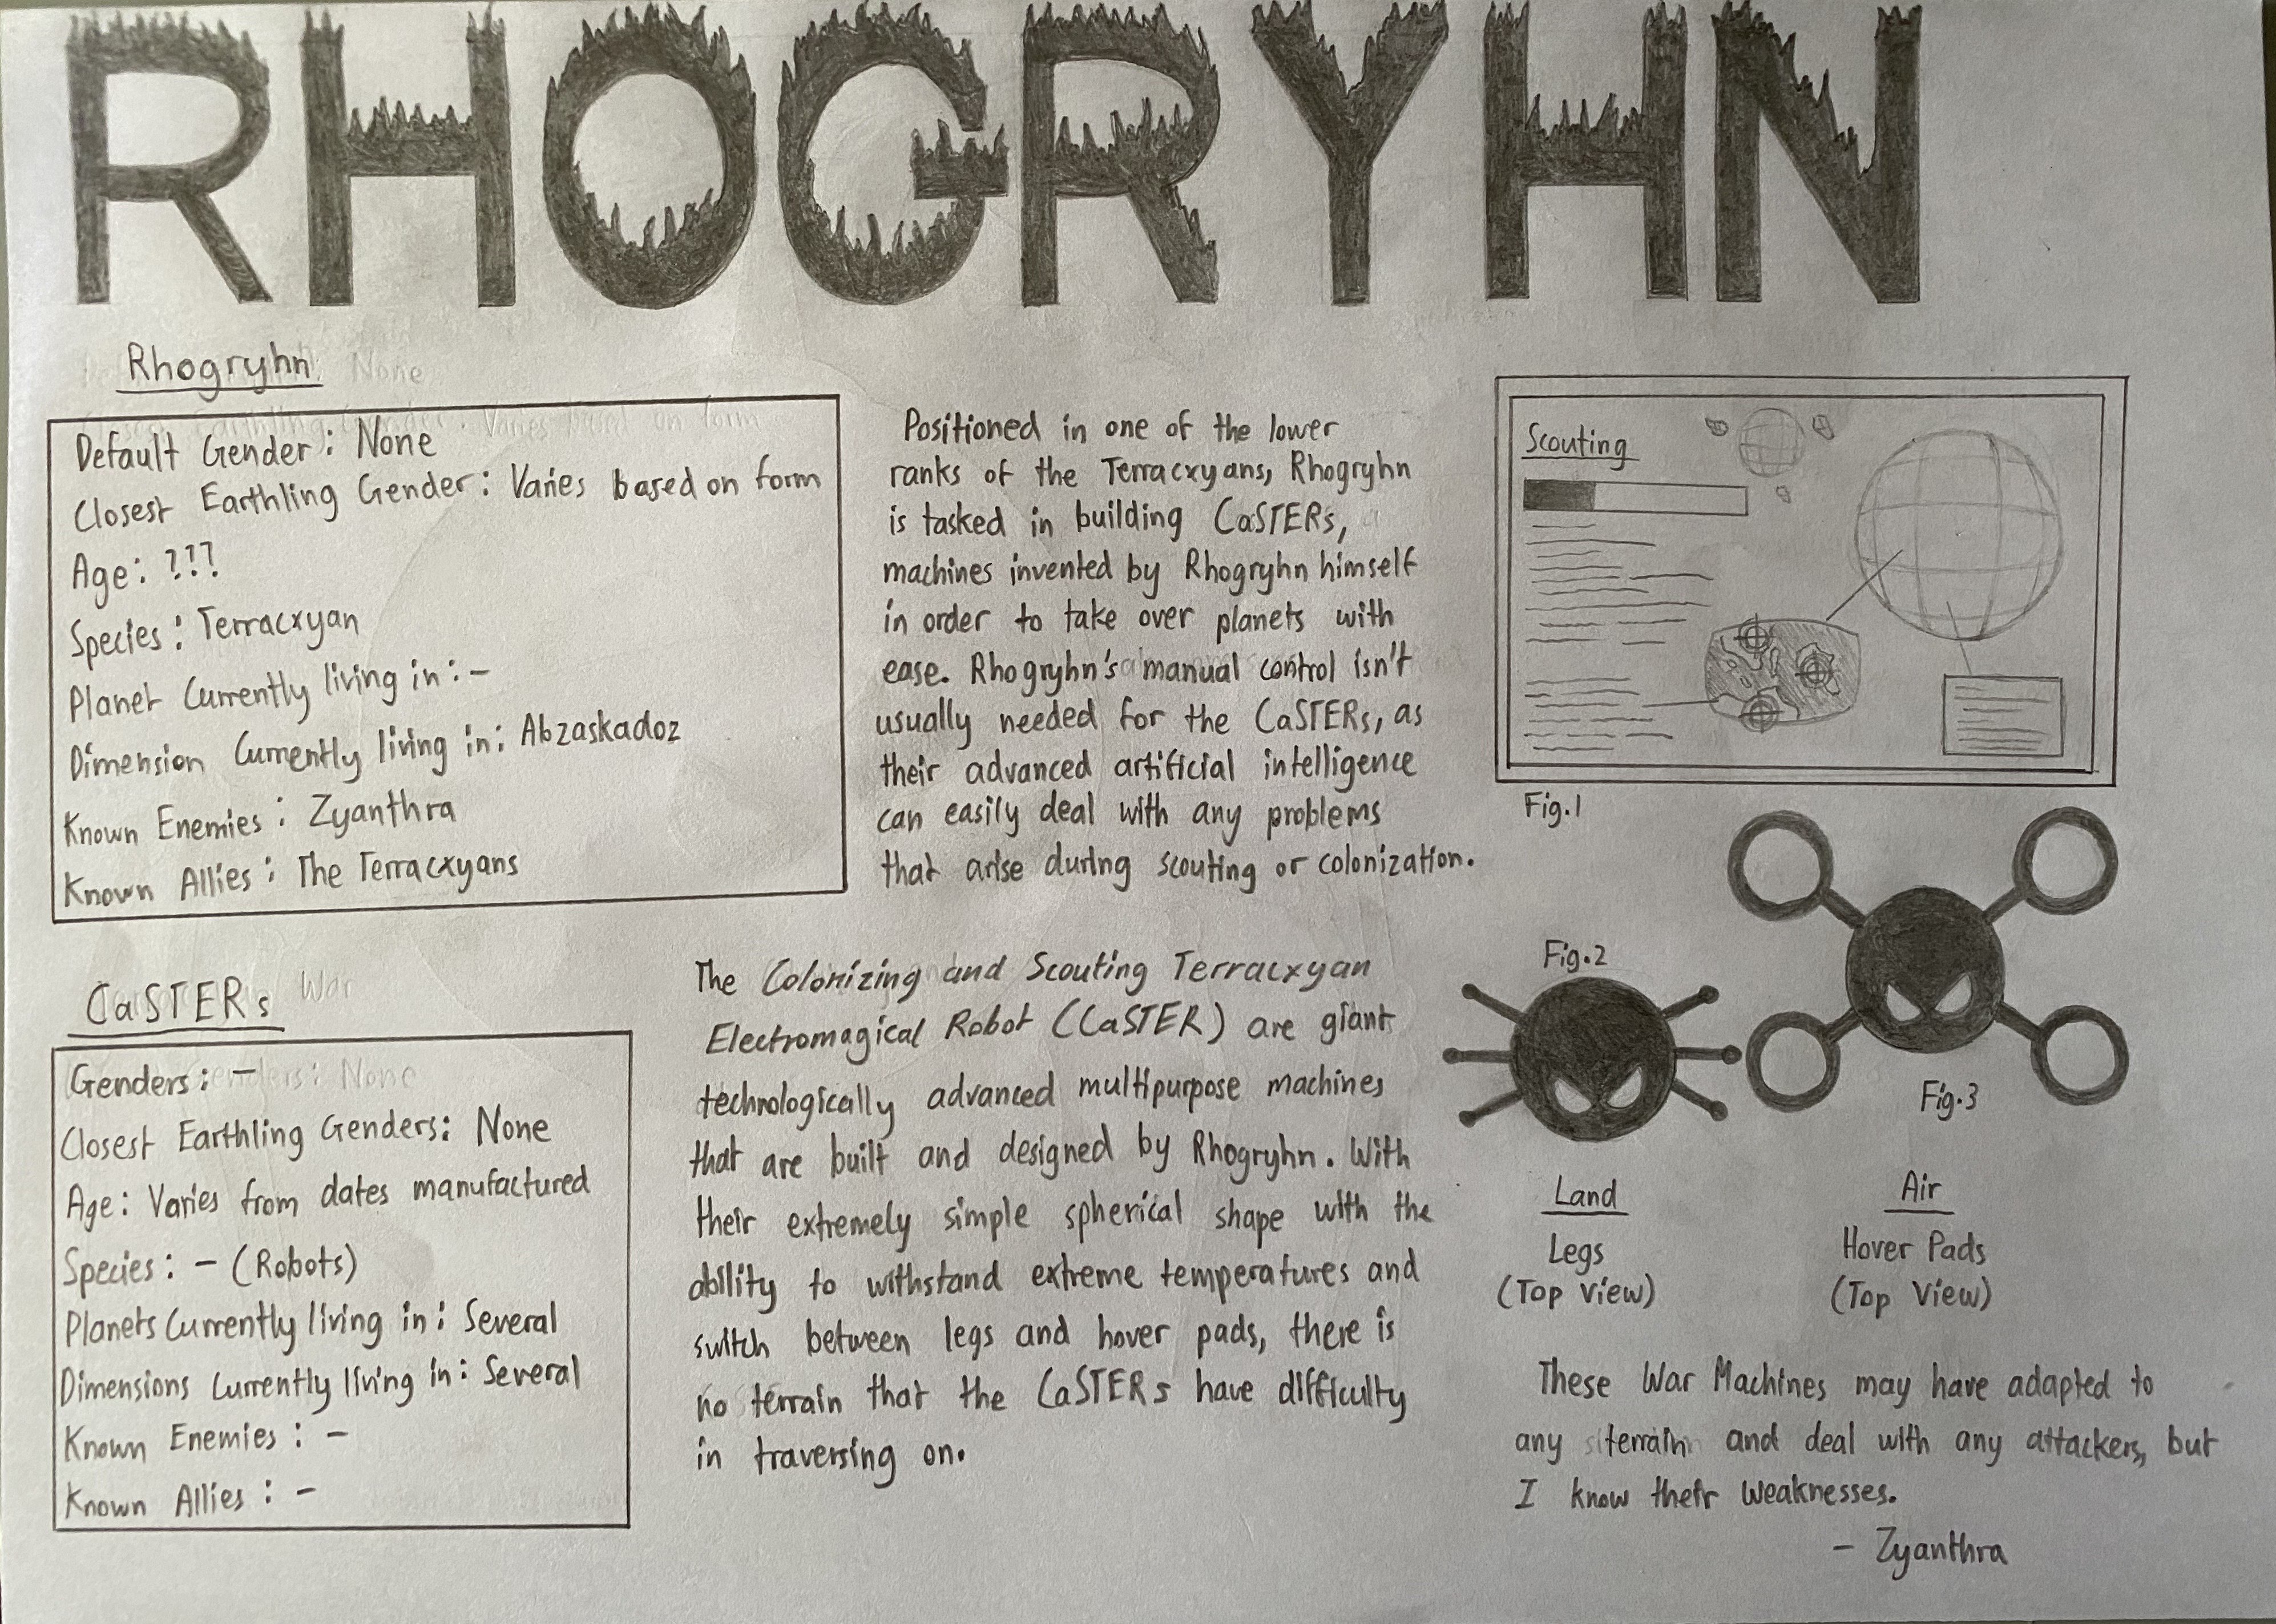 RHOGRYHN
Rhogryhn
Default Gender: None
Closest Earthling Gender: Varies based on form
Age: ???
Species: Terracxyan
Planet Currently living in: -
Dimension Currently living in: Abzaskadoz
Known Enemies: Zyanthra
Known Allies: The Terracxyans
Positioned in one of the lower
ranks of the Terracxyans, Rhogryhn
is tasked in building CaSTERs,
machines invented by Rhogryhn himself
in order to take over planets with
ease. Rhogryhn's manual control isn't
usually needed for the CaSTERs, as
their advanced artificial intelligence
can easily deal with any problems
that arise during scouting or colonization.
Scouting
Fig.1
CaSTERs
Genders: -
Closest Earthling Genders: None
Age: Varies from dates manufactured
Species: - (Robots)
Planets Currently living in: Several
Dimensions Currently living in: Several
Known Enemies: -
Known Allies: -
The Colonizing and Scouting Terracxyan
Electromagical Robot (CaSTER) are giant
technologically advanced multipurpose machines
that are built and designed by Rhogryhn. With
their extremely simple spherical shape with the
ability to withstand extreme temperatures and
switch between legs and hover pads, there is
no terrain that the CaSTERs have difficulty
in traversing on.
Fig.2
Fig.3
Land
Legs
(Top View)
Air
Hover Pads
(Top View)
These War Machines may have adapted to
any terrain and deal with any attackers, but
I know their weaknesses.
- Zyanthra